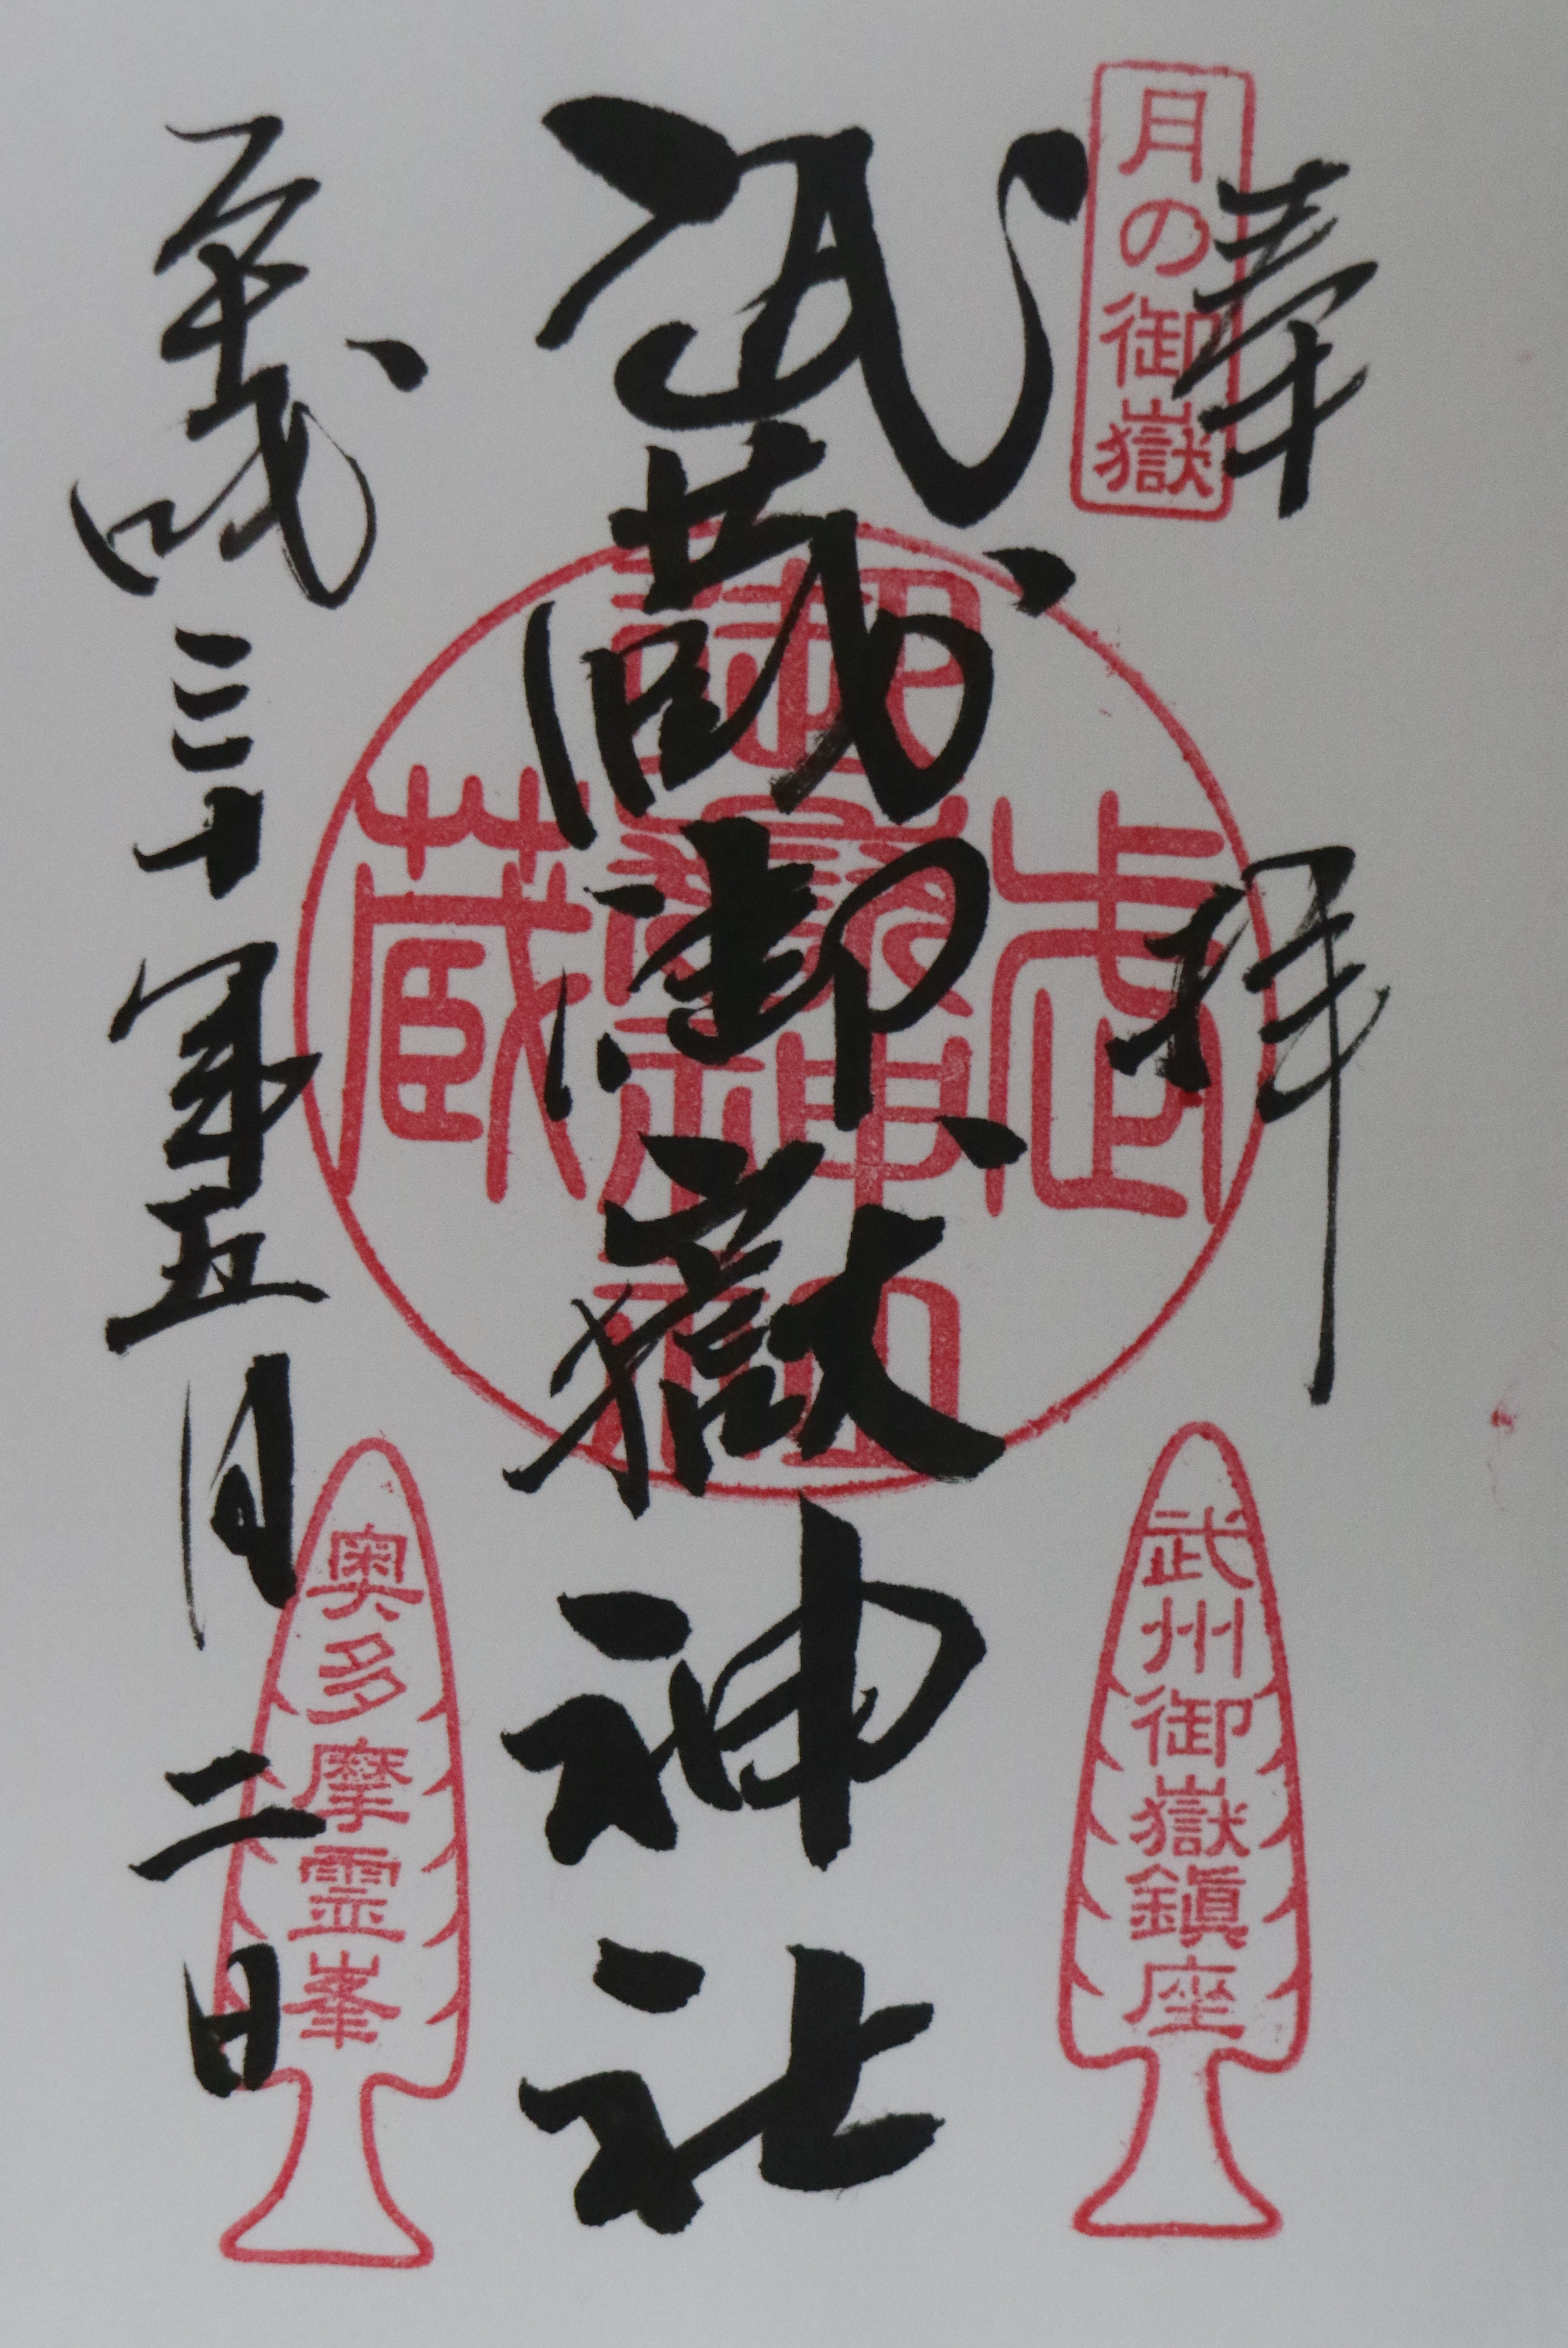 奉拝
月の御嶽
武州御嶽鎮座
武蔵御嶽神社
武蔵
御嶽神社
平成三十年五月二日
奥多摩霊峯